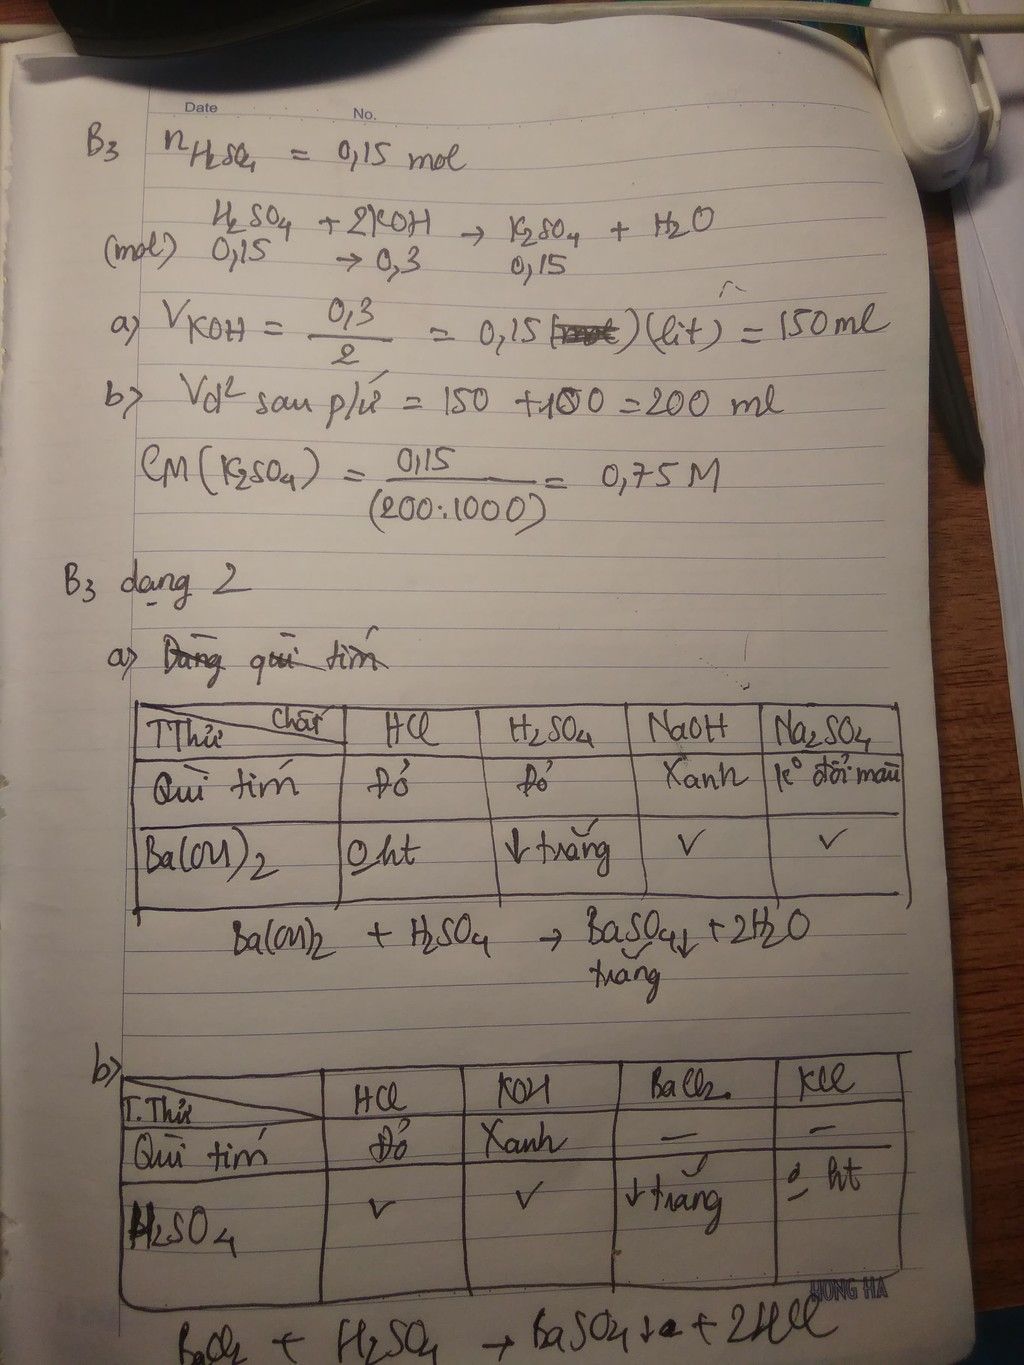 Date No.
B3 nH2SO4 = 0,15 mol
H2SO4 + 2KOH → K2SO4 + H2O
(mol) 0,15 → 0,3 0,15
a) VKOH = 0,3/2 = 0,15 (lít) = 150 ml
b) Vd² sau p/ứ = 150 + 100 = 200 ml
CM(K2SO4) = 0,15/(200:1000) = 0,75 M
B3 dạng 2
a) Dùng quì tím
TThử Chất HCl H2SO4 NaOH Na2SO4
Quì tím Đỏ Đỏ Xanh k° đổi màu
Ba(OH)2 0 ht ↓ trắng ✓ ✓
Ba(OH)2 + H2SO4 → BaSO4↓ + 2H2O
trắng
b)
T.Thử HCl KOH BaCl2 KCl
Quì tím Đỏ Xanh – –
H2SO4 ✓ ✓ ↓ trắng ht
BaCl2 + H2SO4 → BaSO4↓ + 2HCl
HONG HA